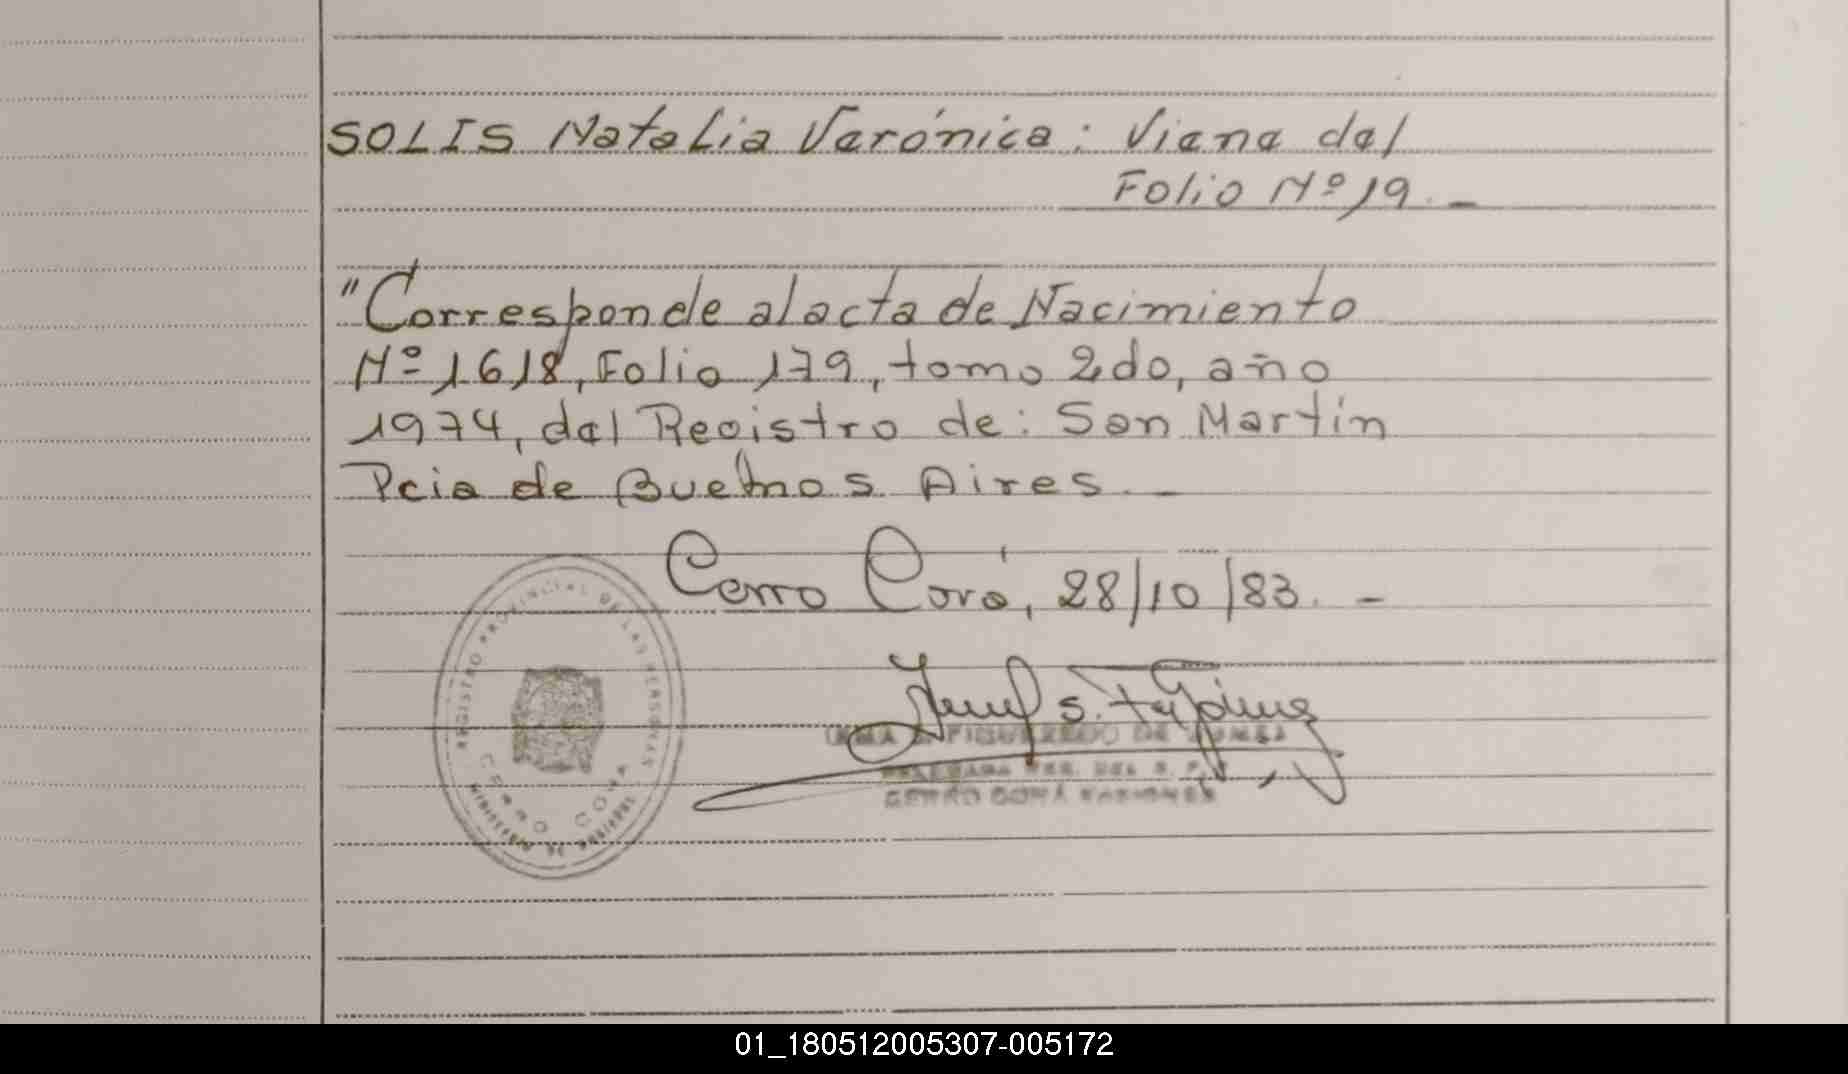 SOLIS Natalia Verónica: Viene del
Folio Nº 19.-
"Corresponde al acta de Nacimiento
Nº 1618, Folio 179, tomo 2do, año
1974, del Registro de: San Martín
Pcia de Buenos Aires.-
Cerro Corá, 28/10/83.-
REGISTRO PROVINCIAL DE LAS PERSONAS
CERRO CORA
MINISTERIO DE GOBIERNO
FIGUEREDO DE
CERRO CORÁ MISIONES
01_180512005307-005172